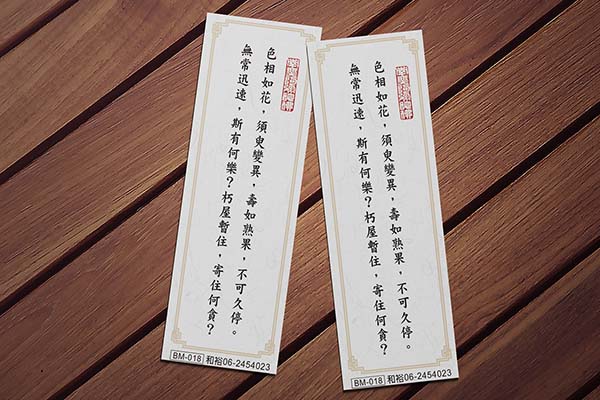 色相如花，須臾變異，壽如熟果，不可久停。
無常迅速，斯有何樂？朽屋暫住，寄住何貪？
BM-018 和裕06-2454023
色相如花，須臾變異，壽如熟果，不可久停。
無常迅速，斯有何樂？朽屋暫住，寄住何貪？
BM-018 和裕06-2454023